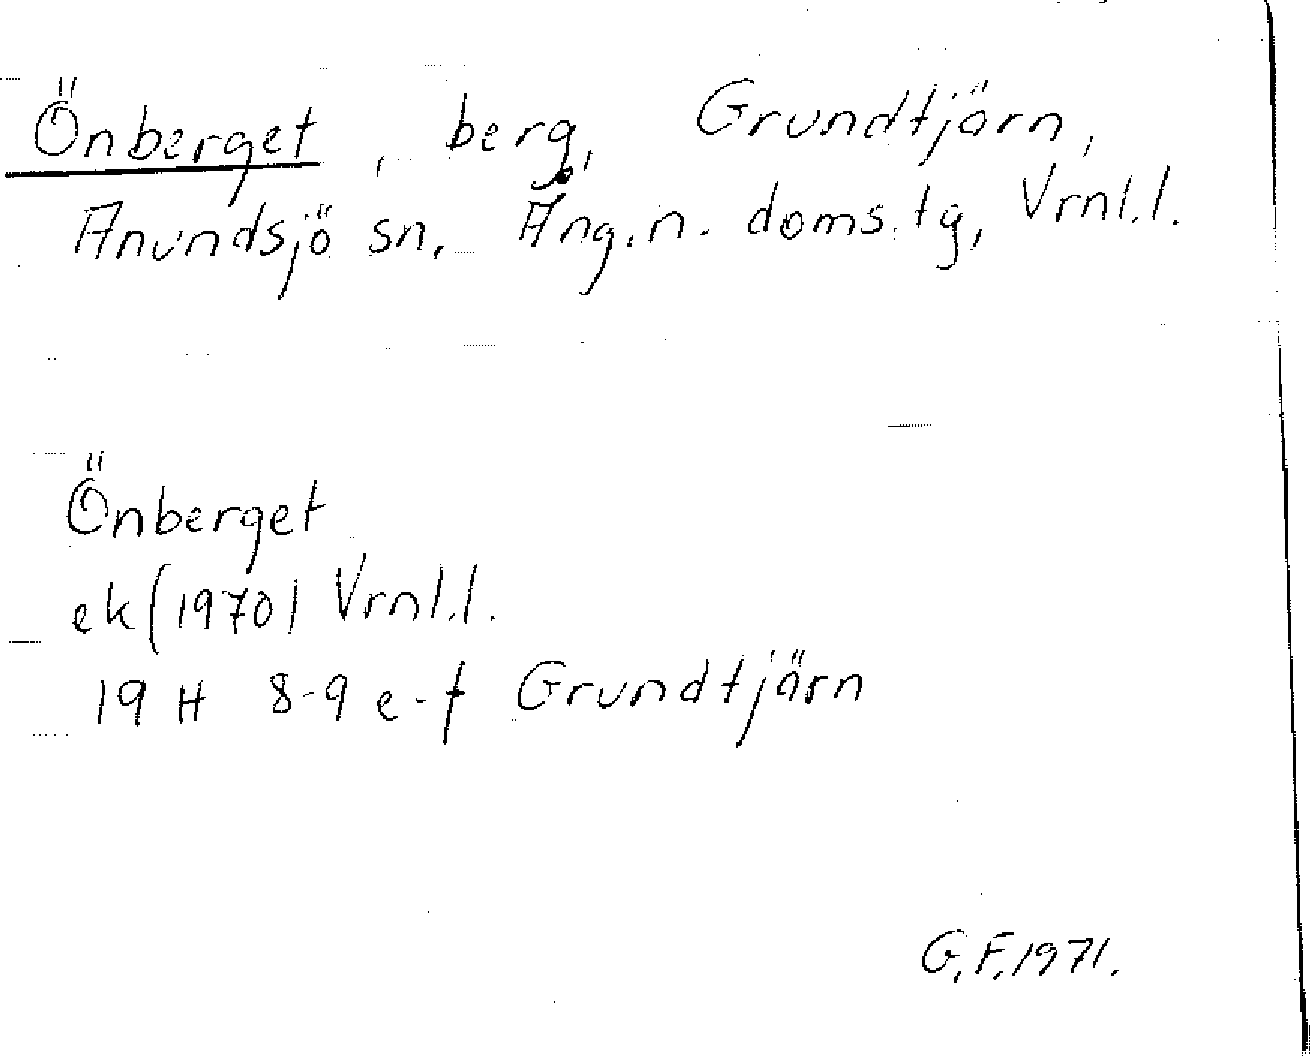 Önberget, berg, Grundtjärn,
Anundsjö sn, Ång.n. doms.tg, Vrnl.l.
Önberget
ek (1970) Vrnl.l.
19 H 8-9 e-f Grundtjärn
G.F. 1971.